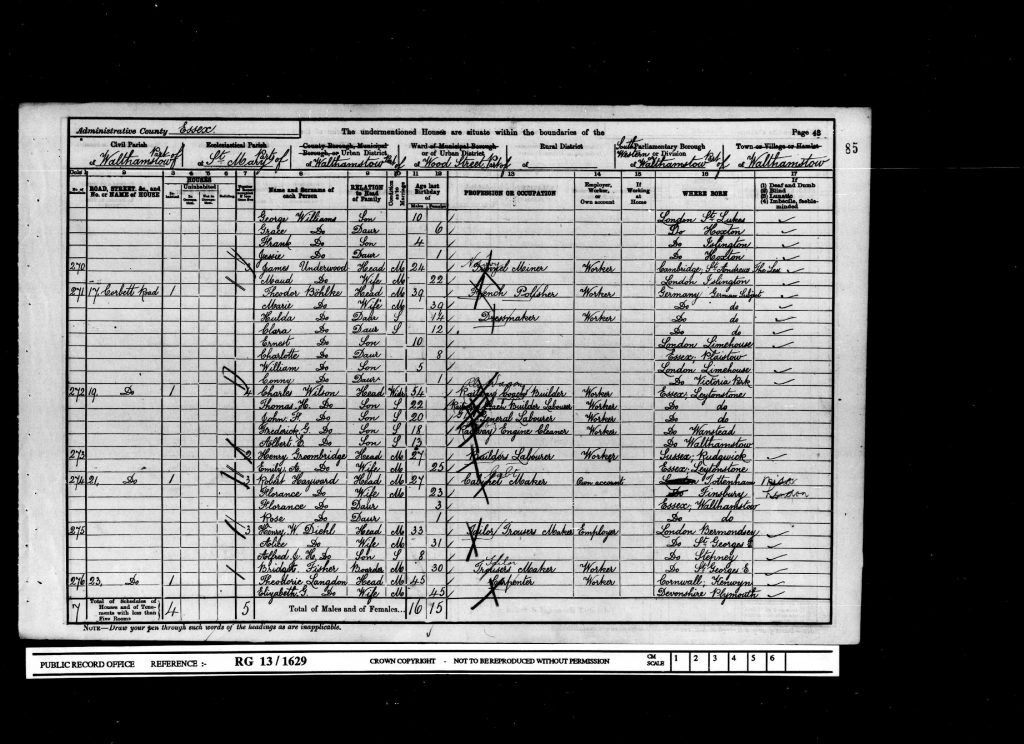 Administrative County Essex
The undermentioned Houses are situate within the boundaries of the
Page 43
85
Civil Parish
Ecclesiastical Parish
County Borough, Municipal Borough, or Urban District
Ward of Municipal Borough or of Urban District
Rural District
Parliamentary Borough or Division
Town or Village or Hamlet
Walthamstow Part of
St Mary Part of
Walthamstow
Wood Street Part of
South Western Walthamstow Part of
Walthamstow
ROAD, STREET, &c., and No. or NAME of HOUSE
HOUSES
Name and Surname of each Person
RELATION to Head of Family
Condition as to Marriage
Age last Birthday of
PROFESSION OR OCCUPATION
Employer, Worker, or Own account
If Working at Home
WHERE BORN
If (1) Deaf and Dumb (2) Blind (3) Lunatic (4) Imbecile, feeble-minded
George Williams Son 10 London St Lukes
Grace Do Daur 6 Do Hoxton
Frank Do Son 4 Do Islington
Jessie Do Daur 1 Do Hoxton
270 3 James Underwood Head M 24 Worker Cambridge St Andrews The Less
Maud Do Wife M 22 London Islington
271 17 Corbett Road 1 Theodor Böhlke Head M 39 French Polisher Worker Germany German Subject
Marie Do Wife M 39 Do do
Hulda Do Daur S 14 Dressmaker Worker Do do
Clara Do Daur S 12 Do do
Ernest Do Son 10 London Limehouse
Charlotte Do Daur 8 Essex Plaistow
William Do Son 5 London Limehouse
Conny Do Daur 1 Do Victoria Park
272 19, Do 1 4 Charles Wilson Head Widr 54 Railway Coach Builder Worker Essex Leytonstone
Thomas H. Do Son S 22 Railway Coach Builder Labourer Worker Do do
John F. Do Son S 20 General Labourer Worker Do do
Frederick G. Do Son S 18 (Railway) Engine Cleaner Worker Do Wanstead
Albert E. Do Son S 13 Do Walthamstow
273 2 Henry Groombridge Head M 27 Builders Labourer Worker Sussex Rudgwick
Emily A. Do Wife M 25 Essex Leytonstone
274 21, Do 1 3 Robert Hayward Head M 27 Cabinet Maker Own account Tottenham
Florance Do Wife M 23 Finsbury London
Florance Do Daur 3 Essex Walthamstow
Rose Do Daur 1 Do do
275 3 Henry W. Diehl Head M 33 Tailor Trousers Maker Employer London Bermondsey
Alice Do Wife M 31 Do St Georges E
Alfred C. H. Do Son S 8 Do Stepney
Bridget Fisher Boarda M 30 Trousers Maker Worker Do St George E.
276 23, Do 1 Theodoric Langdon Head M 45 Carpenter Worker Cornwall, Kenwyn
Elizabeth G. Do Wife M 45 Devonshire Plymouth
7 Total of Schedules of Houses and of Tenements with less than Five Rooms 4 5 Total of Males and of Females... 16 15
NOTE—Draw your pen through such words of the headings as are inapplicable.
PUBLIC RECORD OFFICE REFERENCE :- RG 13 / 1629 CROWN COPYRIGHT - NOT TO BE REPRODUCED WITHOUT PERMISSION CM SCALE 1 2 3 4 5 6